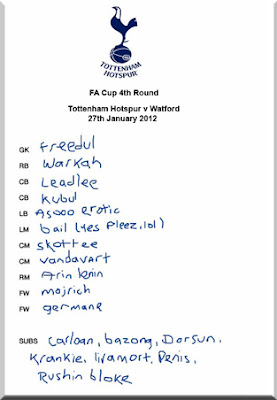 TOTTENHAM
HOTSPUR
FA Cup 4th Round
Tottenham Hotspur v Watford
27th January 2012
GK freedul
RB Warkah
CB Leadlee
CB Kubul
LB Asooo erotic
LM bail (yes Pleez, lol)
CM skottee
CM vandavart
RM Arin lenin
FW mojrich
FW germane
SUBS Carloan, bazong, Dorsun,
Krankie, liramort, Penis,
Rushin bloke